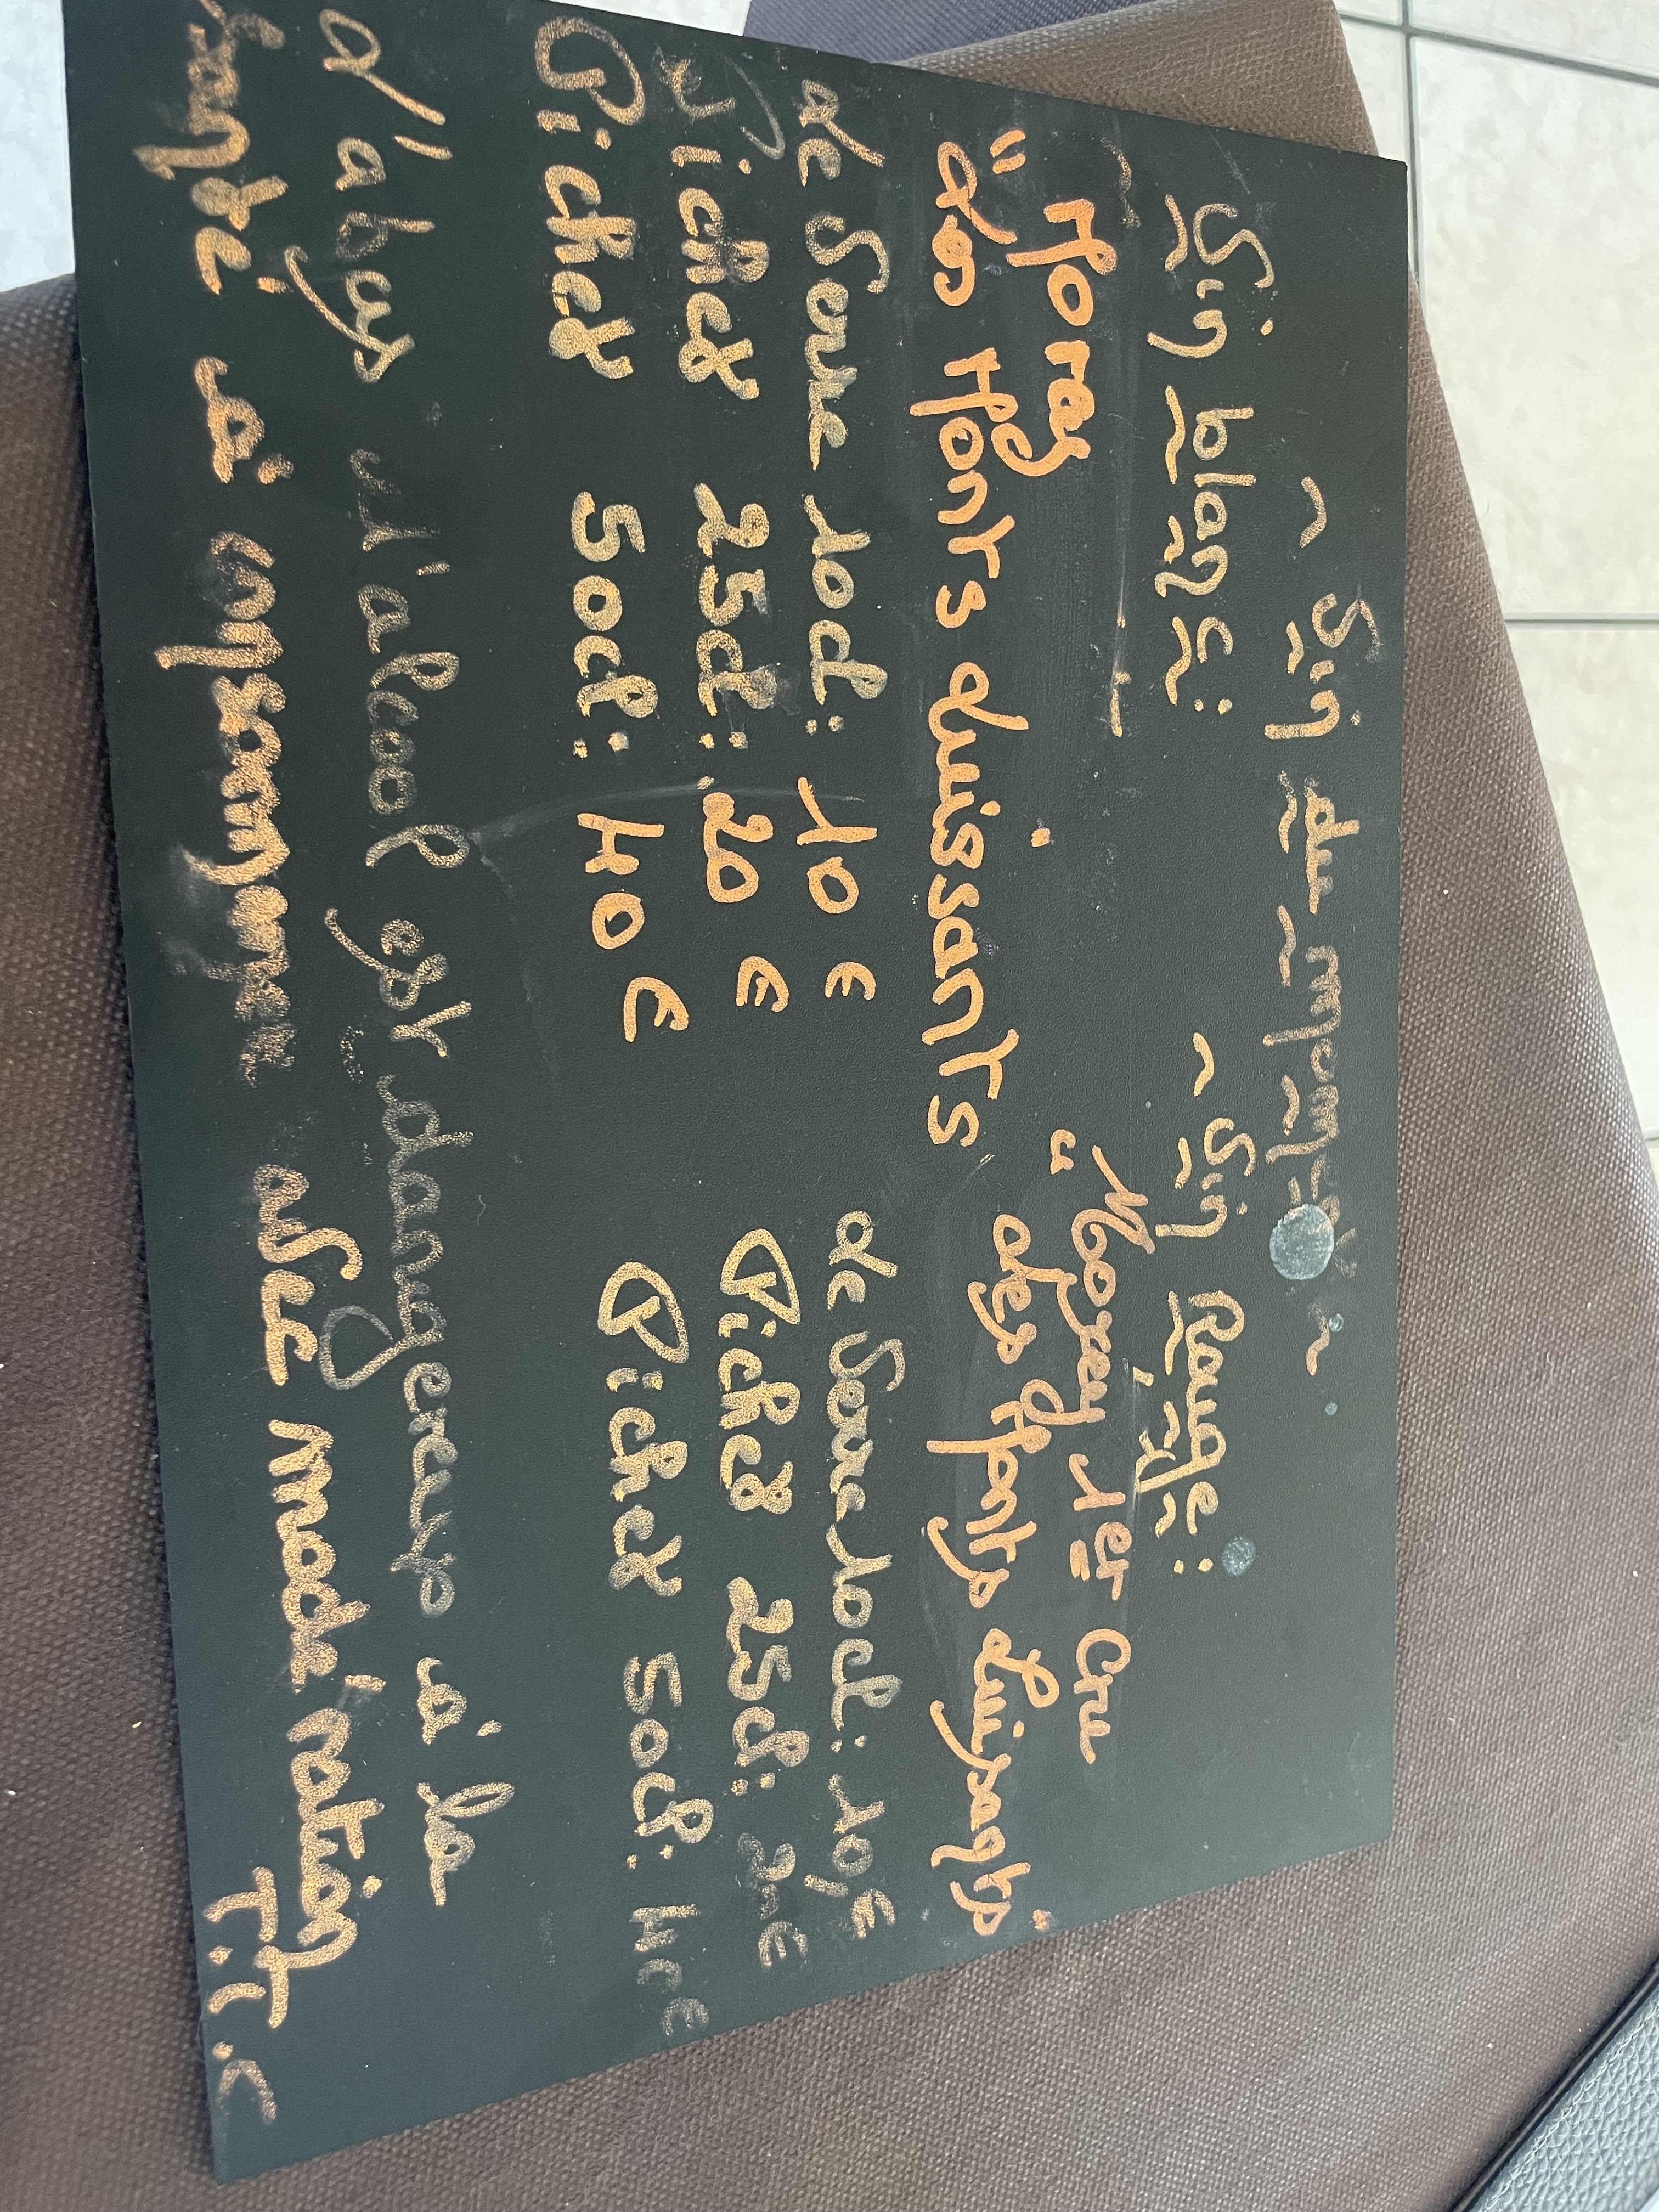 ~ Vin du moment ~
Vin blanc :
Moray
"Les Monts Luisants
Le Verre 10cl : 10 €
Pichet 25cl : 20 €
Pichet 50cl : 40 €
~ Vin Rouge :
Morey 1er Cru
"des Monts Luisants"
Le Verre 10cl : 10 €
Pichet 25cl : 20 €
Pichet 50cl : 40 €
L'abus d'alcool est dangereux à la
Santé à consommer avec modération
T.T.C